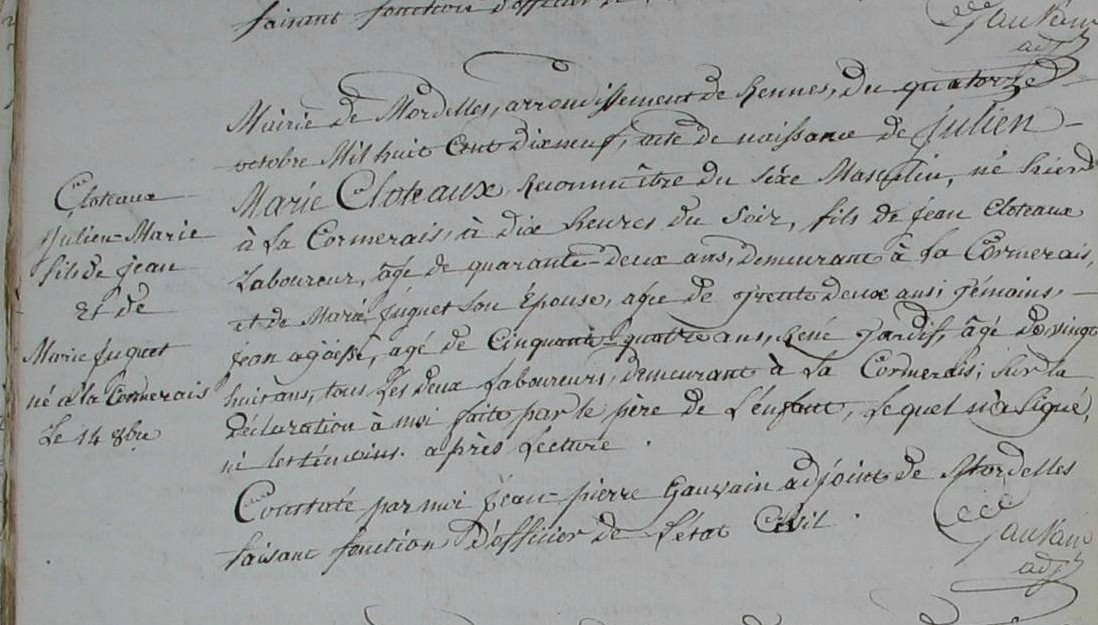 faisant fonction d'officier de
Gauvain
adj
Mairie de Mordelles, arrondissement de Rennes, du quatorze
octobre Mil huit Cent dixneuf, acte de naissance de Julien -
Marie Cloteaux reconnu être du sexe Masculin, né hier
à la Cormerais, à dix heures du Soir, fils de Jean Cloteaux
Laboureur, âgé de quarante-deux ans, demeurant à la Cormerais,
et de Marie Juguet Son Epouse, agée de trente deux ans; témoins, -
Jean agaësse, agé de Cinquante-quatre ans, René Tardif, âgé de vingt
huit ans, tous Les deux Laboureurs, demeurant à la Cormerais; Sur la
déclaration à moi faite par le père de L'enfant, Lequel n'a Signé,
ni les témoins. après Lecture.
Constaté par moi Jean-pierre Gauvain adjoint de Mordelles
faisant fonction D'officier de L'état Civil.
Gauvain
adj
Cloteaux
Julien-Marie
fils de Jean
Et de
Marie Juguet
né à la Cormerais
Le 14 8bre